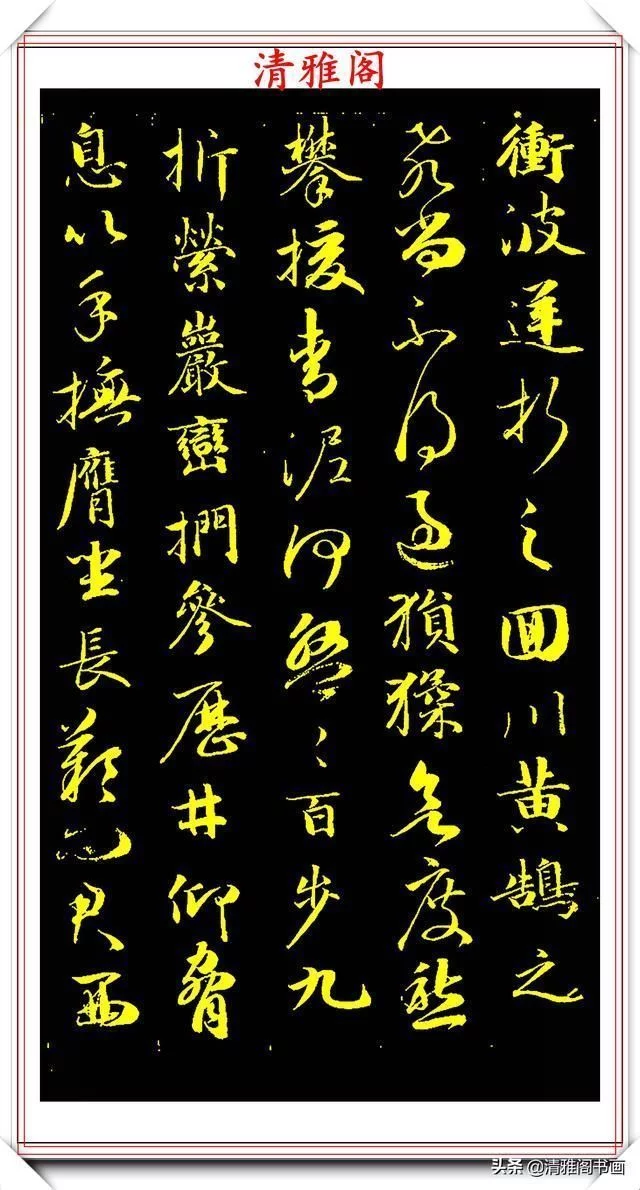 清雅阁
衝波逆折之回川黄鵠之
飛尚不得過猿猱欲度愁
攀援青泥何盤〻百步九
折縈巖巒捫參歷井仰脅
息以手撫膺坐長歎問君西
头条@清雅阁书画